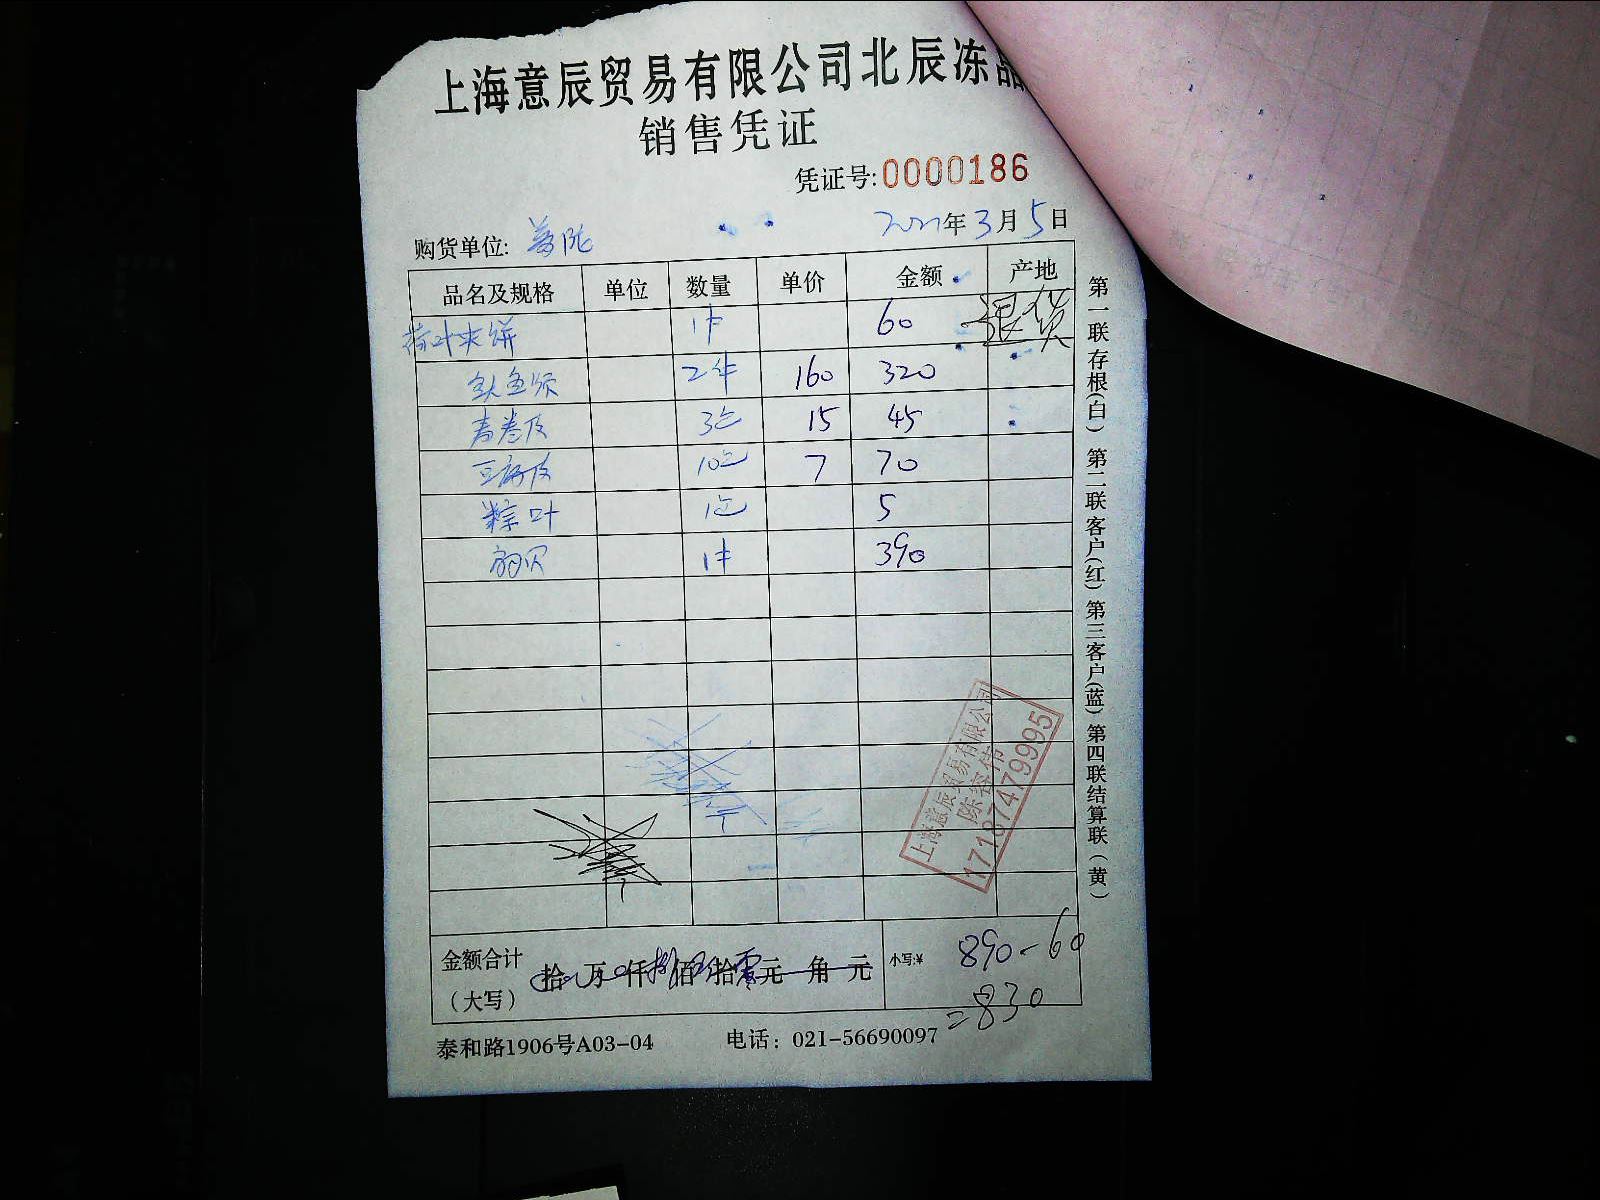 上海意辰贸易有限公司北辰冻品
销售凭证
凭证号:0000186
购货单位: 年3月5日
品名及规格 单位 数量 单价 金额 产地
荷叶夹饼 1件 60 退货
鱿鱼须 2件 160 320
春卷皮 3包 15 45
豆腐皮 10包 7 70
粽叶 1包 5
扇贝 1件 390
上海意辰贸易有限公司
陈容伟
17187479995
金额合计
(大写)
拾 万 仟捌佰 拾零元 角 元
小写:¥ 890-60
=830
泰和路1906号A03-04 电话: 021-56690097
第一联存根(白) 第二联客户(红) 第三客户(蓝) 第四联结算联(黄)